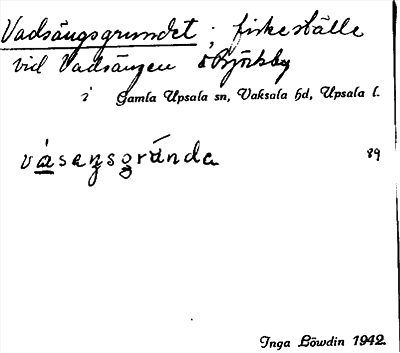 Vadsängsgrundet; fiskeställe
vid Vadsängen
i Gamla Upsala sn, Vaksala hd, Upsala l.
89
Inga Löwdin 1942.